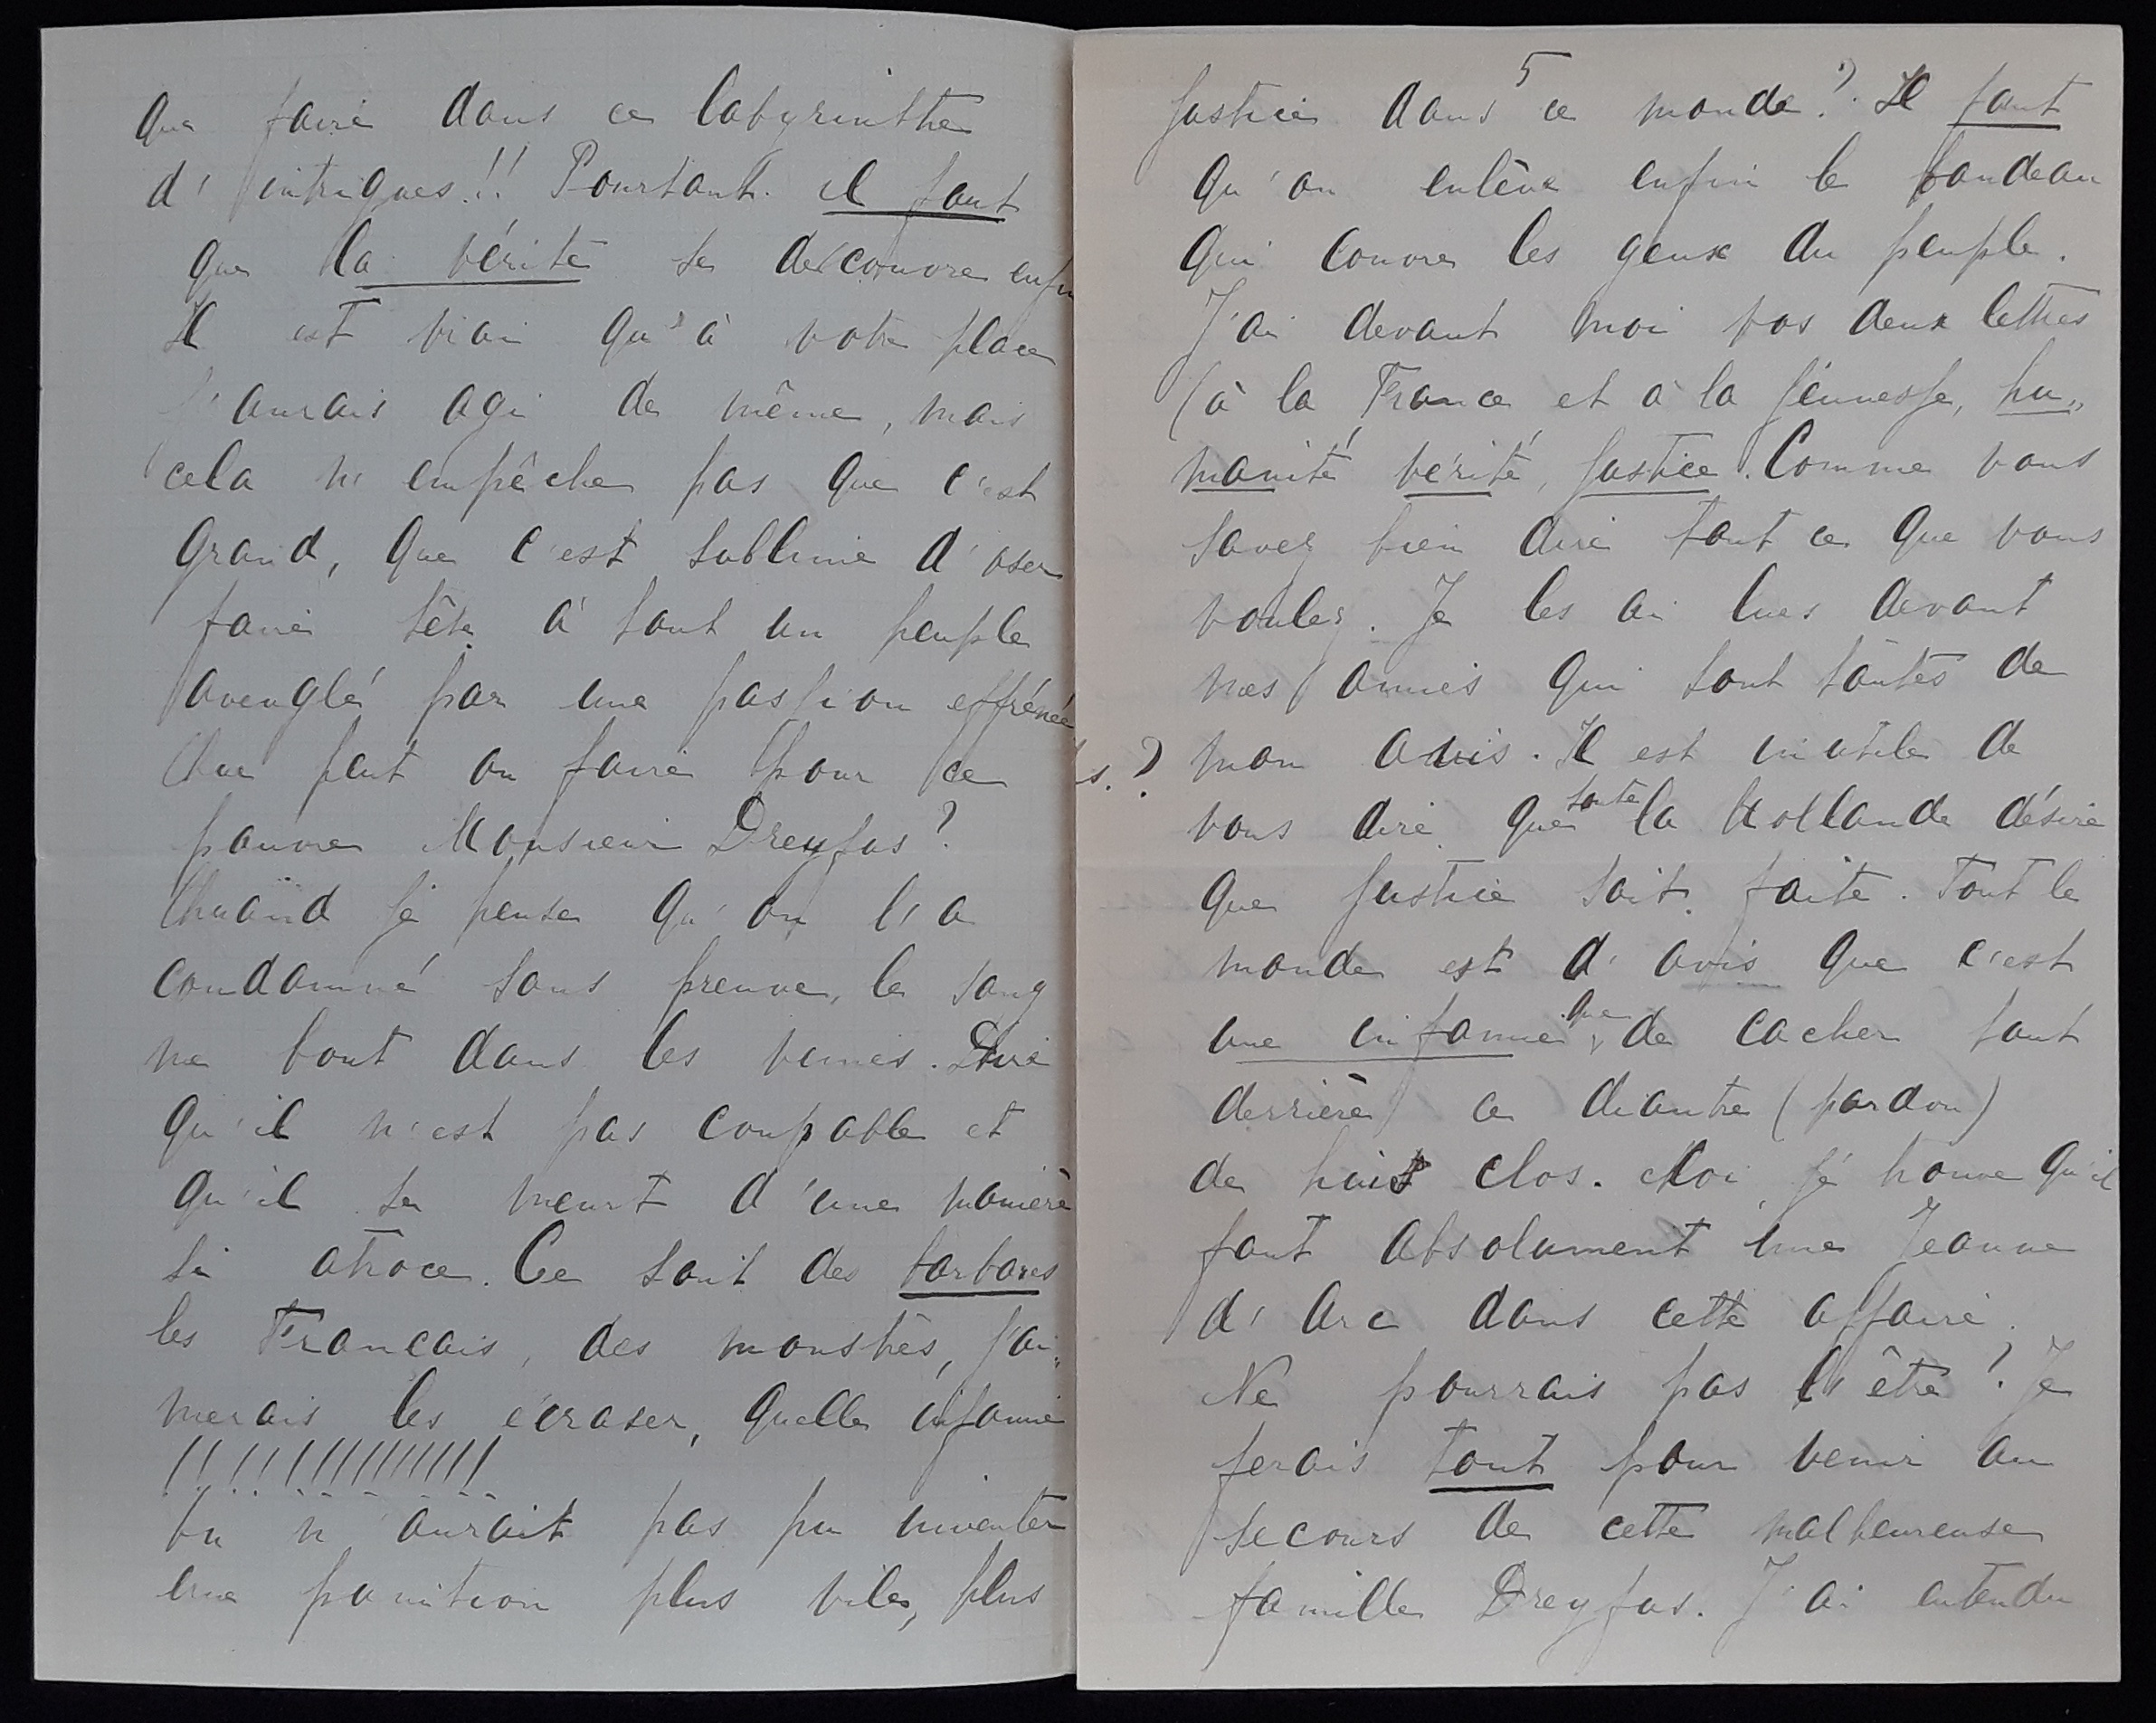 Que faire dans ce labyrinthe
d'intriques!! Pourtant. il faut
que la vérité se découvre enfin
Il est vrai qu'à votre place
j'aurais agi de même, mais
cela n'empêche pas que c'est
grand, que c'est sublime d'oser
faire tête à tout un peuple
aveuglé par une passion effrénée
Que peut on faire pour ce
pauvre Monsieur Dreyfus?
Quand je pense qu'on l'a
condamné sans preuve, le sang
me bout dans les veines. Dire
qu'il n'est pas coupable et
qu'il se meurt d'une manière
si atroce. Ce sont des barbares
les Francais, des monstres, j'ai„
merais les écraser, quelle infamie
!!!!!!!!!!!!!!
On n'aurait pas pu inventer
une punition plus vile, plus
5
justice dans ce monde? Il faut
qu'on enlève enfin le bandeau
qui couvre les yeux du peuple.
J'ai devant moi vos deux lettres
(à la France et à la jeunesse, hu„
manité, vérité, justice. Comme vous
savez bien dire tout ce que vous
voulez. Je les ai lues devant
mes amies qui sont toutes de
s.? mon avis. Il est inutile de
vous dire que toute la Hollande désire
que justice soit faite. Tout le
monde est d'avis que c'est
une infamie que de cacher tout
derrière ce diantre (pardon)
de huis clos. Moi, je trouve qu'il
faut absolument une Jeanne
d'Arc dans cette affaire.
Ne pourrais pas l'être? Je
ferais tout pour venir au
secours de cette malheureuse
famille Dreyfus. J'ai entendu